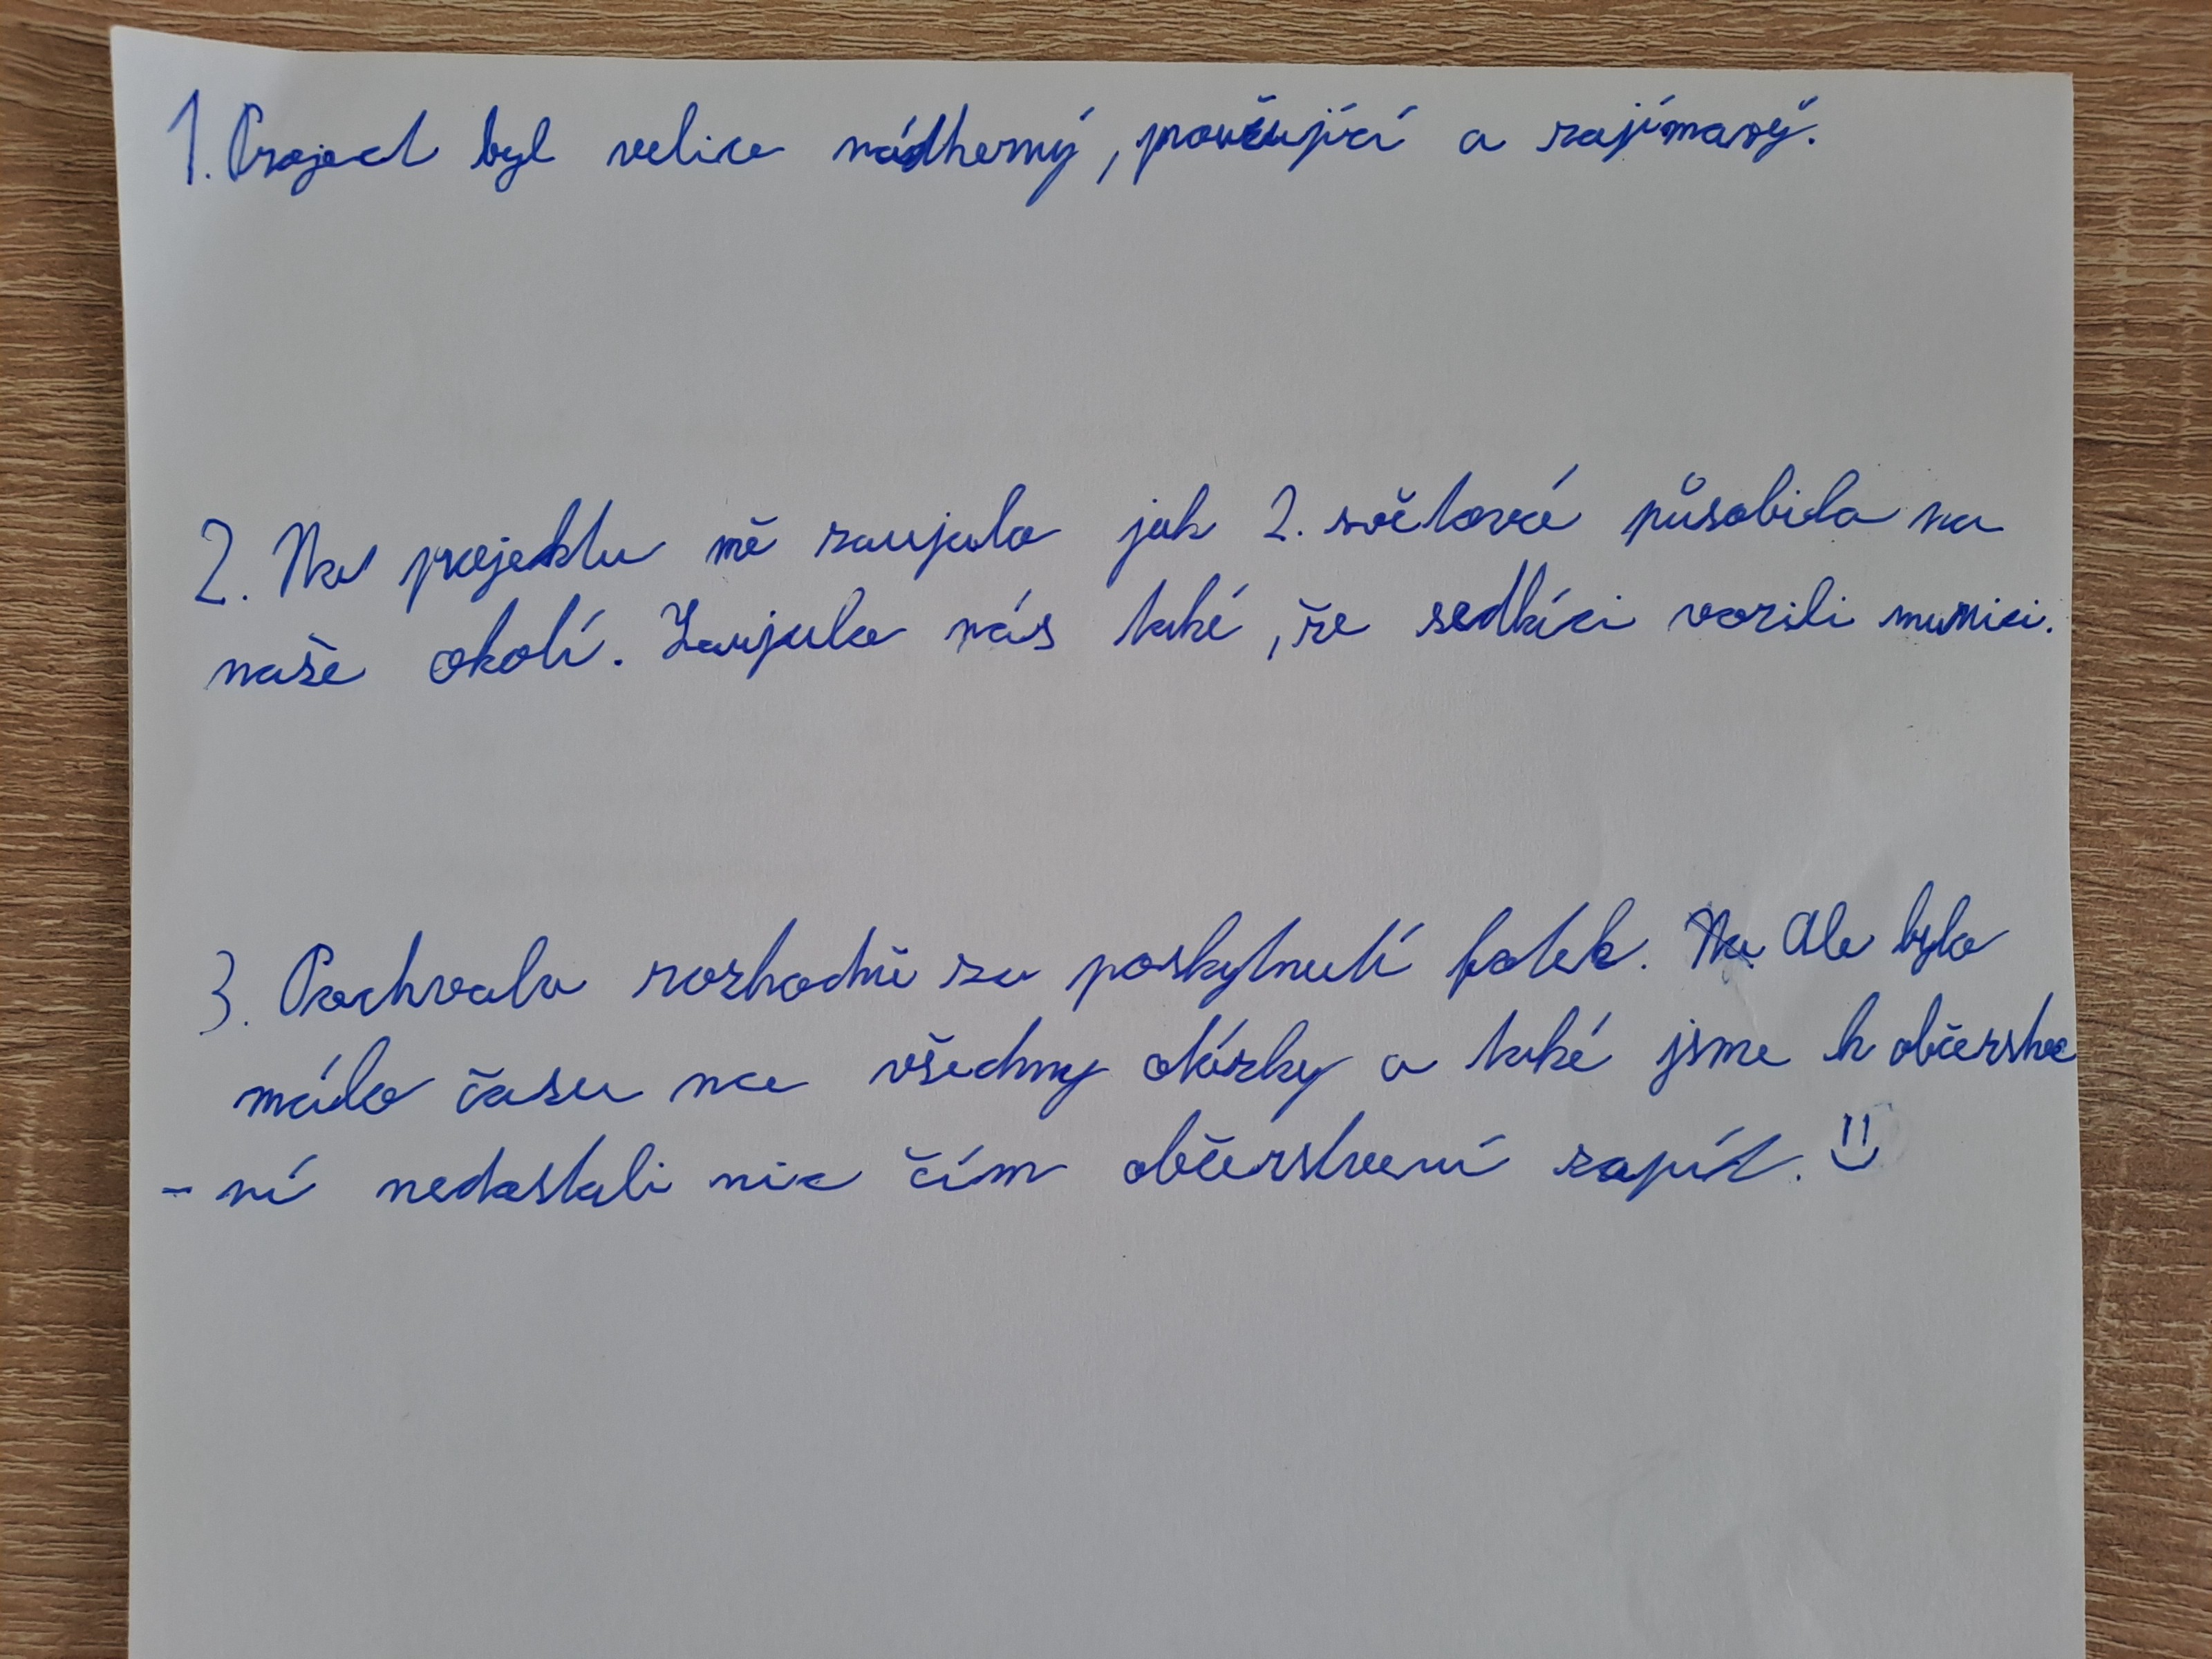 1. Project byl velice nádherný, poučující a zajímavý.
2. Na projektu mě zaujalo jak 2. světová působila na
naše okolí. Zaujalo nás také, že sedláci vozili munici.
3. Pochvala rozhodně za poskytnutí fotek. Na Ale bylo
málo času na všechny otázky a také jsme k občerstve
- ní nedostali nic čím občerstvení zapít. :)